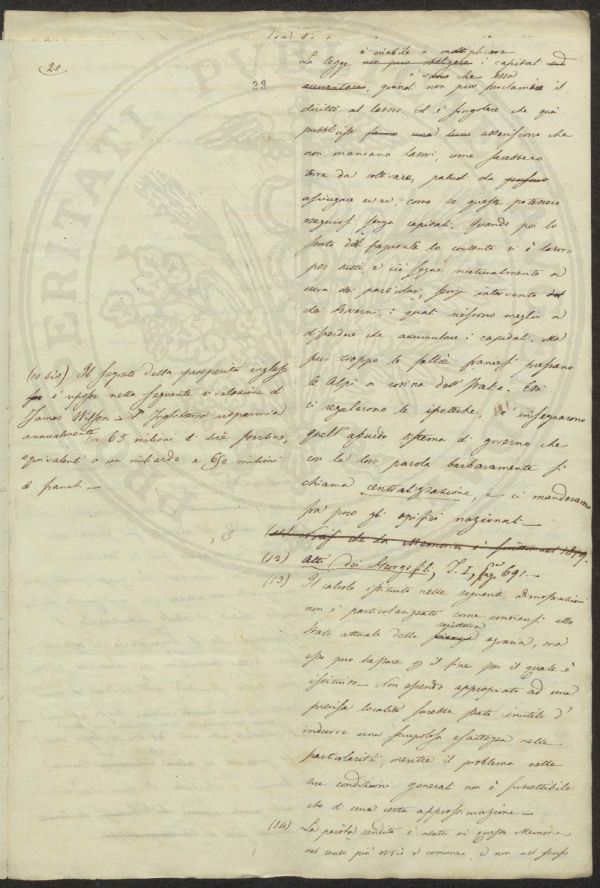 20
23
è inabile a moltiplicare
La legge non può obbligare i capitali ad
è vano che essa
aumentare, quindi non può proclamare il
diritto al lavoro. Ed è singolare che quei
pubblicisti asseriscono che
non mancano lavori, come sarebbero
terre da coltivare, paludi da
asciugare ecc., come se questi potessero
eseguirsi senza capitali. Quando poi lo
stato del Capitale lo consente vi è lavoro
per tutti, e ciò segue naturalmente a
cura dei particolari, senza intervento
dei Governi, i quali riescono meglio a
disperdere che accumulare i capitali. Ma
pur troppo le follie francesi passano
le Alpi a rovina dell'Italia. Essi
ci regalarono le ipoteche, c'insegnarono
quell'assurdo sistema di governo che
con la loro parola barbaramente si
chiama centralizzazione, e ci manderanno
fra poco gli opifici nazionali.—
(10 bis) Il segreto della prosperità inglese
è riposto nella seguente rivelazione di
James Wilson — L'Inghilterra risparmia
annualmente 65 milioni di lire sterline,
equivalenti a un miliardo e 650 milioni
di franchi.—
(11) che la Memoria è scritta nel
(12) Atti dei Georgofili, T. I, pag. 691.—
(13) Il calcolo istituito nelle seguenti dimostrazioni
non è particolarizzato come conviensi allo
stato attuale della scienza agraria, ma
esso può bastare pel fine per il quale è
istituito. Non essendo appropriato ad una
precisa località sarebbe stato inutile d'
indurre una scrupolosa esattezza nelle
particolarità, mentre il problema nelle
sue condizioni generali non è suscettibile
che di una certa approssimazione.—
(14) La parola rendita è usata in questa Memoria
nel senso più ovvio e comune, e non nel senso